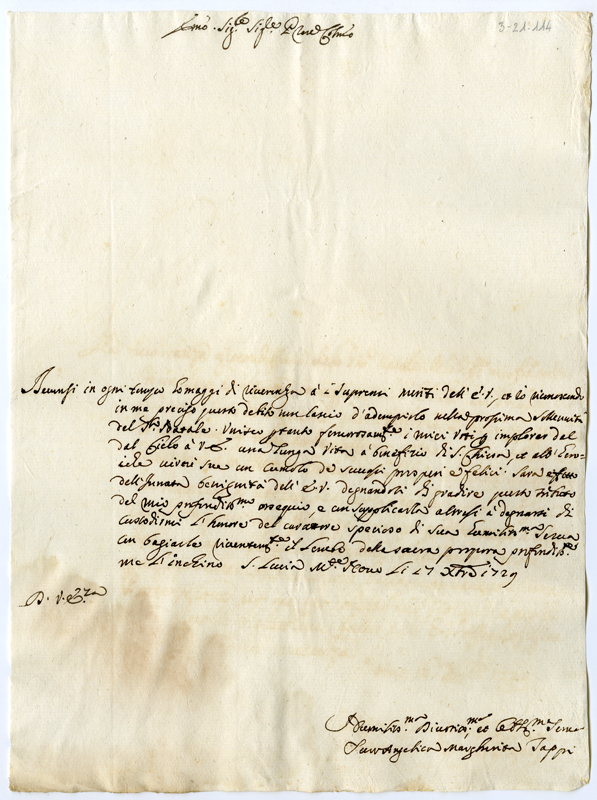 Emo. Sig.re Sig.re Prne Colmo
3-21:114
Devonsi in ogni tempo homaggi di riverenza à i supremi meriti dell' E.V., et io riconoscendo
in me preciso questo debito non lascio d'adempirlo nella prossima sollennità
del S.mo Natale. Unisco pertanto i miei voti implorar dal
dal Cielo à V.E. una lunga Vita à benefizio di S. Chiesa, et all'
sue un cumulo de successi prosperi e felici. Sarà effetto
dell'innata benignità dell' E.V. degnandosi di gradire questo tributo
del mio profondiss.mo ossequio, e con supplicarla altresì à degnarsi di
l'honore del carattere specioso di sua humiliss.ma Serva
con bagiarle riverentem.te il lembo della sacra porpora profondiss.te
me l'inchino S. Lucia M. Li 17 Xbre 1729
D. V. E.za
Humiliss.ma Divotiss.ma et Obb.ma Serva
Suor Angelica Margherita Tappi